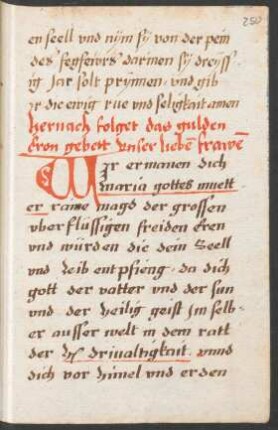 250
en seell vnd nÿm sÿ von der pein
des segfeirs darinen sÿ dreyss
ig Jar solt prÿnnen, vnd gib
jr die ewig rue vnd seligkait amen
hernach folget das gulden
Eron gebett vnser lieben frawen
Wir ermanen dich
maria gottes muett
er raine magd der grossen
vberflüssigen freiden eren
vnd würden die dein Seell
vnd leib entpfieng, da dich
gott der vatter vnd der sun
vnd der heilig geist Im selb-
er ausser welt in dem ratt
der hȷ driualtigkait vnnd
dich vor himel vnd erden